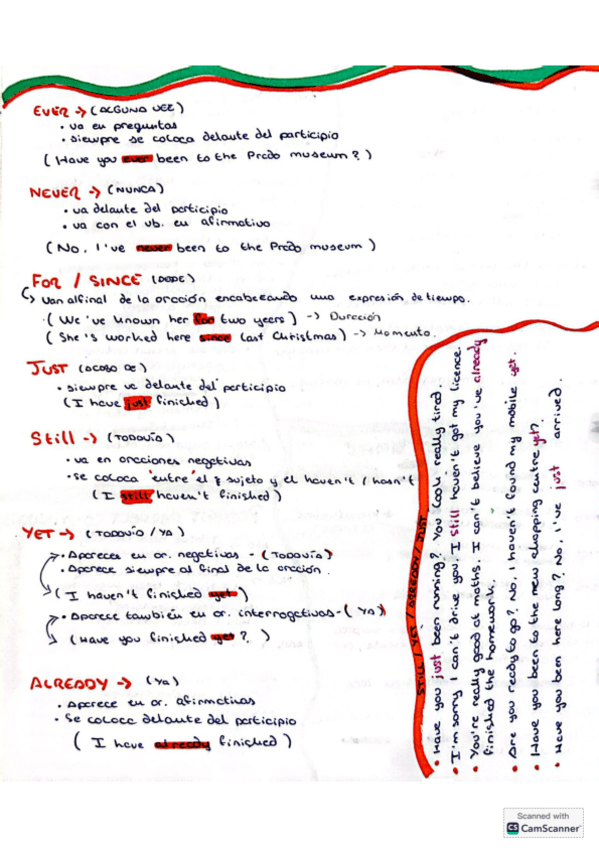 EVER → (ALGUNA VEZ)
• va en preguntas
• siempre se coloca delante del participio
(Have you ever been to the Prado museum?)
NEVER → (NUNCA)
• va delante del participio
• va con el vb. en afirmativo
(No, I've never been to the Prado museum)
FOR / SINCE (DESDE)
↳ Van al final de la oración encabezando una expresión de tiempo.
· (We've known her for two years) → Duración
(She's worked here since last Christmas) → Momento.
JUST (ACABO DE)
• siempre va delante del participio
(I have just finished)
Still → (TODAVÍA)
• va en oraciones negativas
• se coloca entre el sujeto y el haven't / hasn't
(I still haven't finished)
YET → (TODAVÍA / YA)
• Aparece en or. negativas - (TODAVÍA)
• Aparece siempre al final de la oración.
(I haven't finished yet)
• Aparece también en or. interrogativas - (YA)
(Have you finished yet?)
ALREADY → (Ya)
• aparece en or. afirmativas
• Se coloca delante del participio
(I have already finished)
STILL / YET / ALREADY / JUST
• Have you just been running? You look really tired.
• I'm sorry I can't drive you. I still haven't got my licence.
• You're really good at maths. I can't believe you've already
finished the homework.
• Are you ready to go? No, I haven't found my mobile yet.
• Have you been to the new shopping centre yet?
• Have you been here long? No, I've just arrived.
Scanned with
CS CamScanner